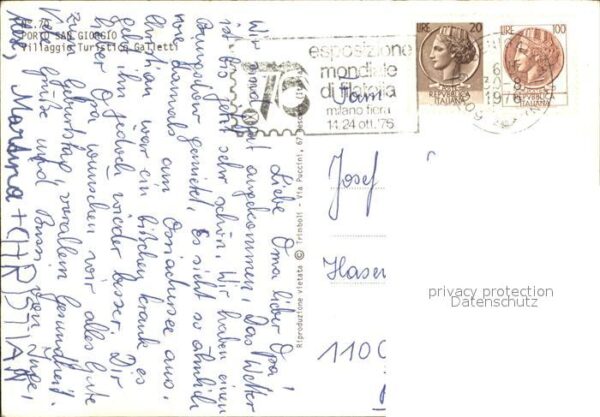 N. 70
PORTO SAN GIORGIO
Villaggio Turistico Galletti
Liebe Oma, lieber Opa!
Wir sind gut angekommen. Das Wetter
ist bis jetzt sehr schön. Wir haben einen
Bungalow gemietet. Es sieht so ähnlich
wie damals am Ossiachersee aus.
Christian war ein bißchen krank es
geht ihm jedoch wieder besser. Dir
lieber Opa wünschen wir alles Gute
zum Geburtstag, vor allem Gesundheit.
Viele Grüße und Bussi von Inge,
Martina + CHRISTIAN
Riproduzione vietata © Trimboli - Via Puccini, 67
76
esposizione
mondiale
di filatelia
milano fiera
14-24 ott. '76
LIRE 20
REPUBBLICA
ITALIANA
LIRE 100
REPUBBLICA
ITALIANA
1976
Fam
Josef
Haser
1100
privacy protection
Datenschutz